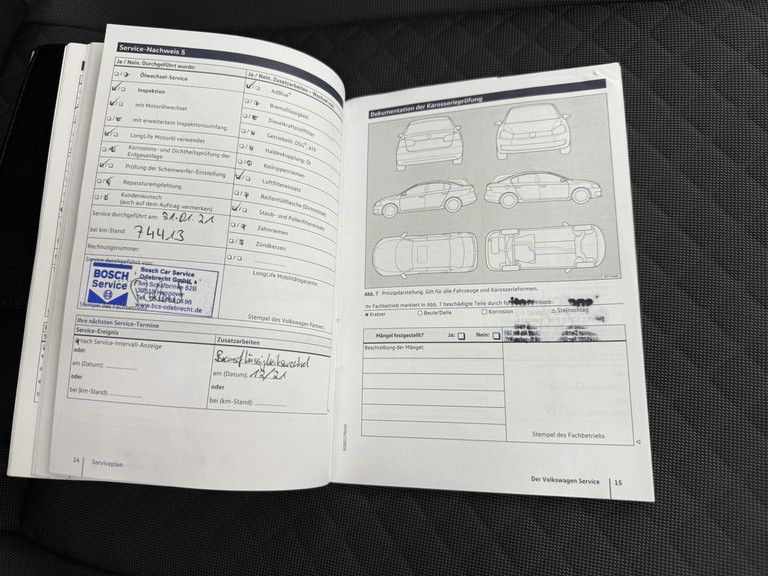 Service-Nachweis 5
Ja / Nein. Durchgeführt wurde:
Ölwechsel-Service
Inspektion
mit Motorölwechsel
mit erweitertem Inspektionsumfang
LongLife Motoröl verwendet
Korrosions- und Dichtheitsprüfung der
Erdgasanlage
Prüfung der Scheinwerfer-Einstellung
Reparaturempfehlung
Kundenwunsch
(auch auf dem Auftrag vermerken)
Service durchgeführt am: 21.01.21
bei km-Stand: 74413
Rechnungsnummer:
Service durchgeführt von:
BOSCH
Service
Bosch Car Service
Odebrecht GmbH
Am Schafbrinke 62B
www.bcs-odebrecht.de
Ja / Nein. Zusatzarbeiten - Wechsel von
AdBlue®
Bremsflüssigkeit
Dieselkraftstofffilter
Getriebeöl: DSG®, ATF
Haldexkupplung: Öl
Keilrippenriemen
Luftfiltereinsatz
Reifenfüllflasche (Dichtmittel)
Staub- und Pollenfiltereinsatz
Zahnriemen
Zündkerzen
LongLife Mobilitätsgarantie:
Stempel des Volkswagen Partners
Ihre nächsten Service-Termine
Service-Ereignis
nach Service-Intervall-Anzeige
oder
am (Datum):
oder
bei (km-Stand):
Zusatzarbeiten
Bremsflüssigkeitswechsel
am (Datum): 12/21
oder
bei (km-Stand):
14 Serviceplan
Dokumentation der Karosserieprüfung
Abb. 7 Prinzipdarstellung. Gilt für alle Fahrzeuge und Karosserieformen.
Ihr Fachbetrieb markiert in Abb. 7 beschädigte Teile durch
x Kratzer
Beule/Delle
Korrosion
△ Steinschlag
Mängel festgestellt? Ja: Nein:
Beschreibung der Mängel:
Stempel des Fachbetriebs
Der Volkswagen Service 15